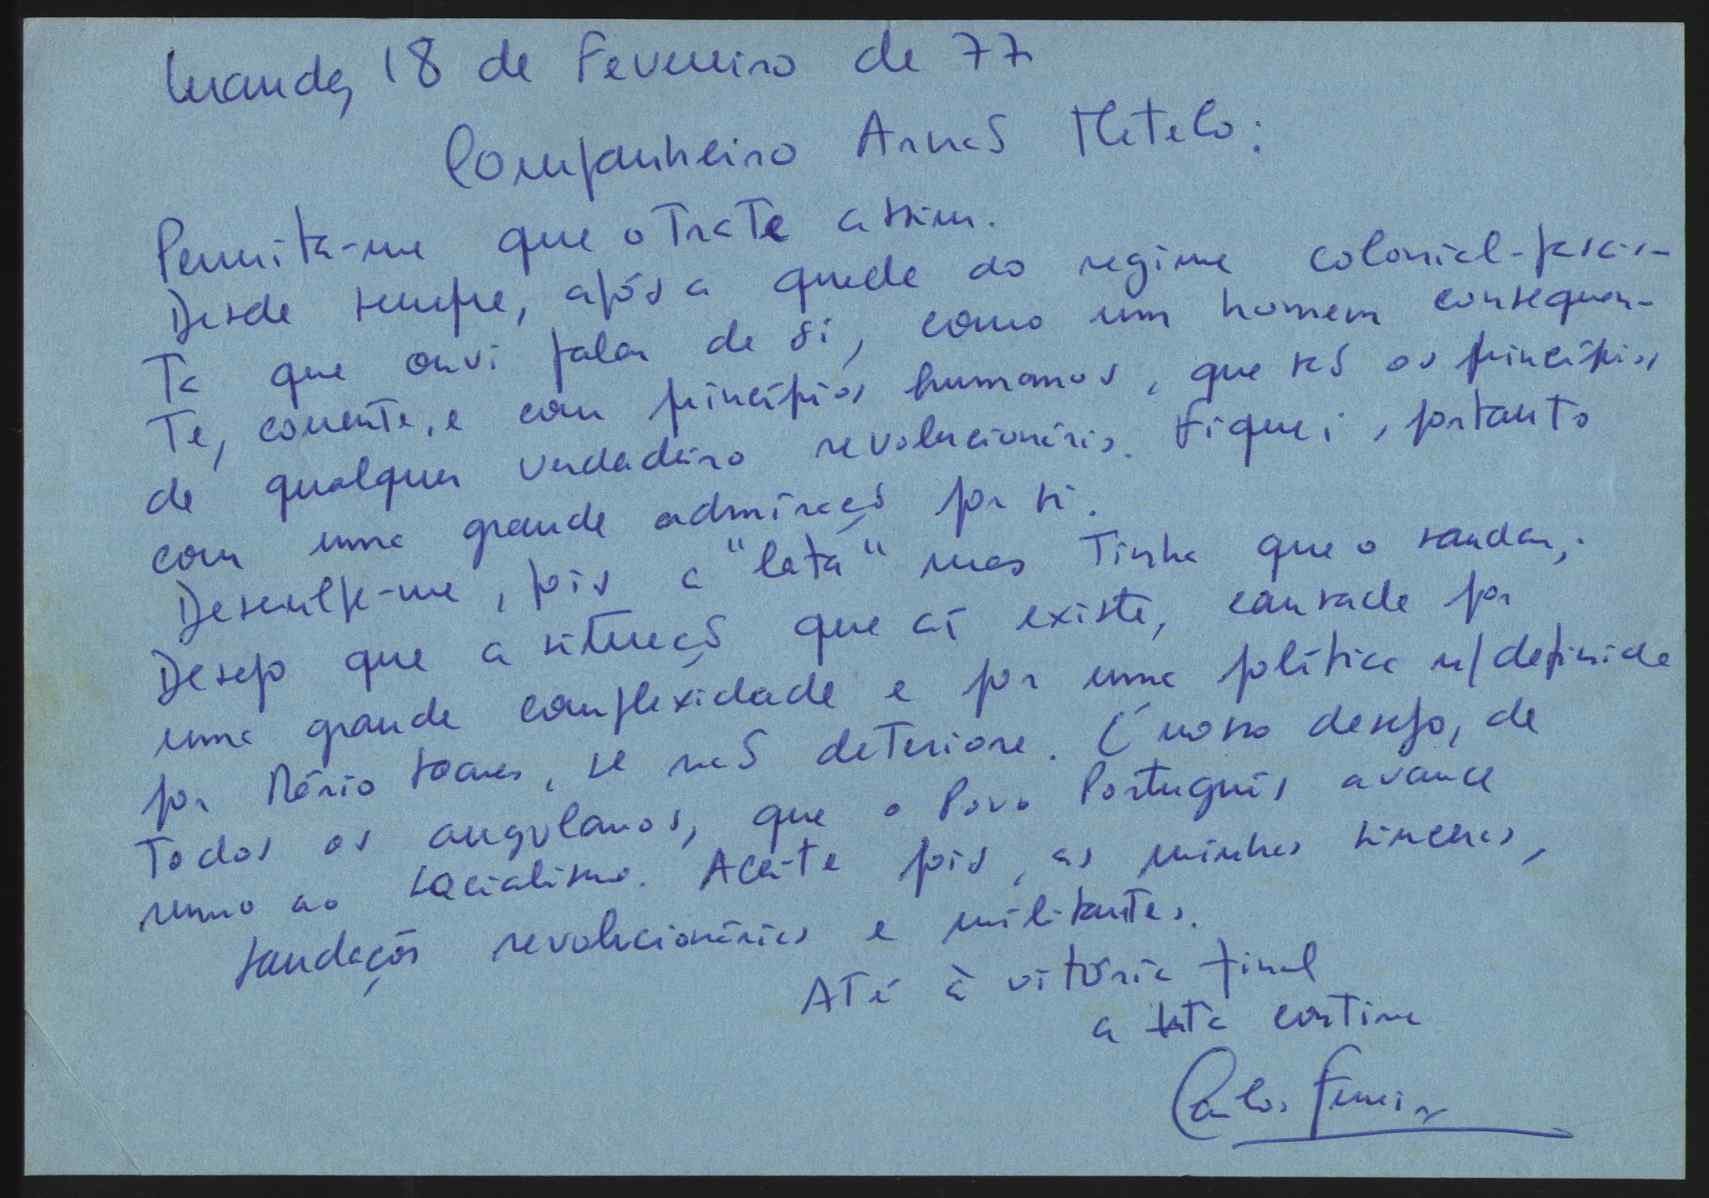 Luanda, 18 de Fevereiro de 77
Companheiro Arnaõ Metelo:
Permita-me que o trate assim.
Desde sempre, após a queda do regime colonial-fascis-
ta que ouvi falar de si, como um homem consequen-
te, coerente, e com princípios humanos, que são os princípios
de qualquer verdadeiro revolucionário. Fiquei, portanto
com uma grande admiração por si.
Desculpe-me, pois a "lata" mas tinha que o saudar,.
Desejo que a situação que aí existe, causada por
uma grande complexidade e por uma política n/definida
por Mário Soares, se não deteriore. É nosso desejo, de
todos os angolanos, que o Povo Português avance
rumo ao socialismo. Aceite pois, as minhas sinceras,
saudações revolucionárias e militantes.
Até à vitória final
a luta continua
Carlos Ferreira